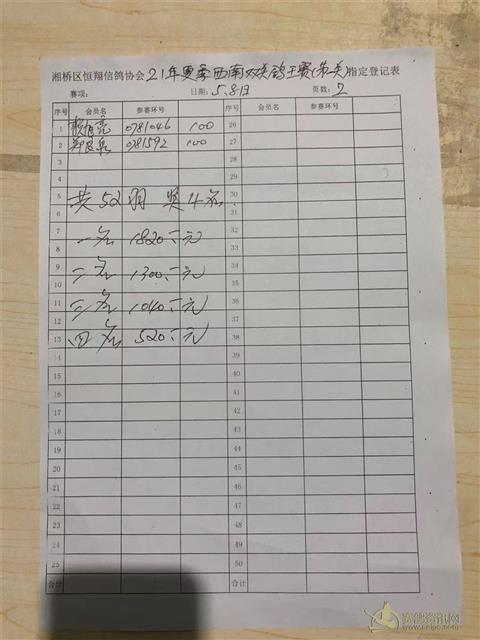 湘桥区恒翔信鸽协会21年夏季西南双关鸽王赛(第一关)指定登记表
赛项: 日期: 5.8日 页数: 2
序号 会员名 参赛环号 序号 会员名 参赛环号
1 0781046 100 26
2 郑良泉 0781592 100 27
3 28
4 29
5 共52羽 奖4名 30
6 31
7 一名 1820元 32
8 33
9 二名 1300元 34
10 35
11 三名 1040元 36
12 37
13 四名 520元 38
14 39
15 40
16 41
17 42
18 43
19 44
20 45
21 46
22 47
23 48
24 49
25 50
合计 合计